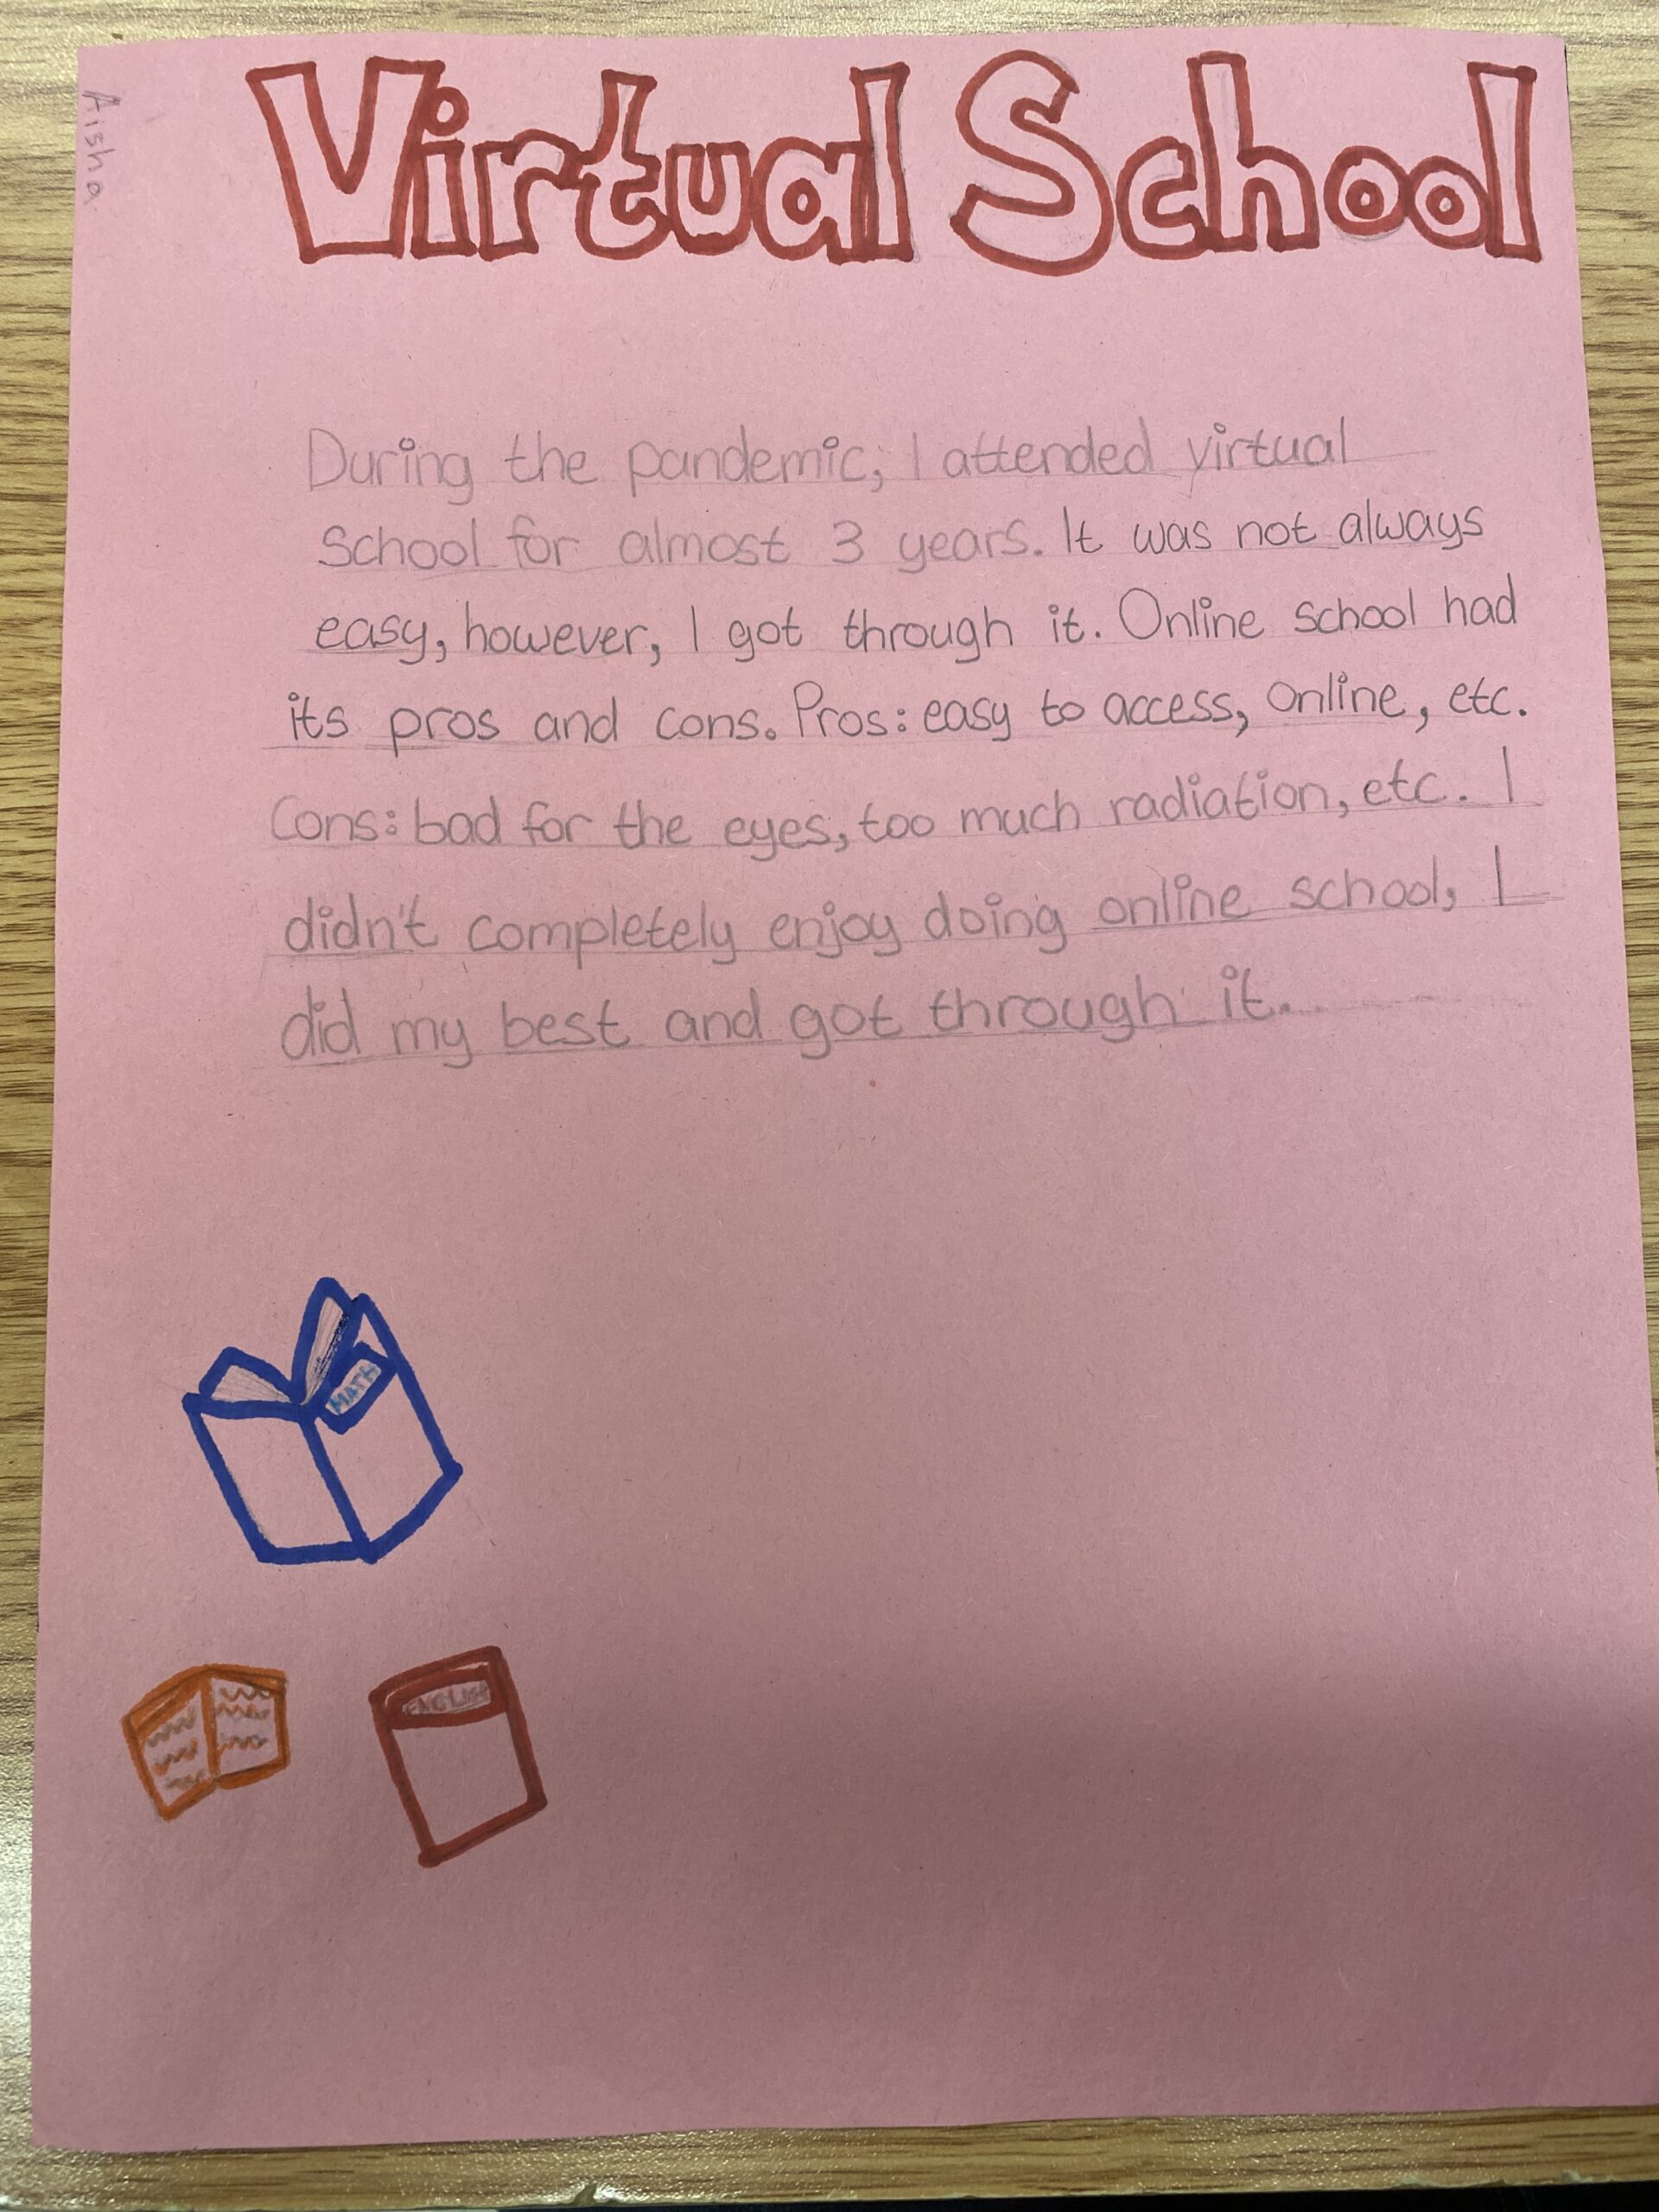 Virtual School
Aisha
During the pandemic, I attended virtual
School for almost 3 years. It was not always
easy, however, I got through it. Online school had
its pros and cons. Pros: easy to access, online, etc.
Cons: bad for the eyes, too much radiation, etc. I
didn't completely enjoy doing online school, I
did my best and got through it.
MATH
ENGLISH